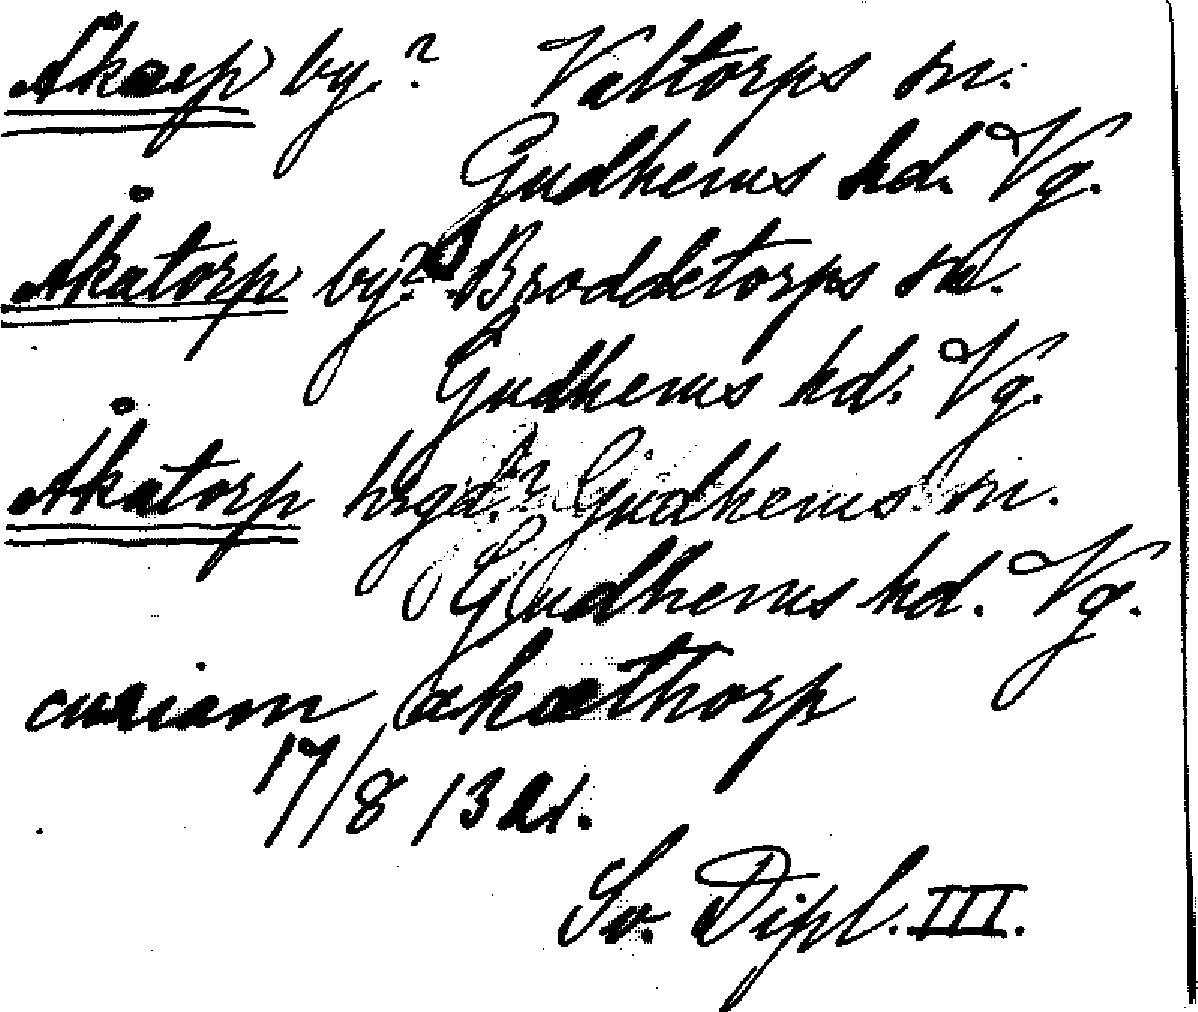 Åkarp by.? Valtorps sn.
Gudhems hd. Vg.
Åkatorp by? Broddetorps sn.
Gudhems hd. Vg.
Åkatorp hrgd.? Gudhems sn.
Gudhems hd. Vg.
curiam akathorp
17/8 13
Sv. Dipl. III.